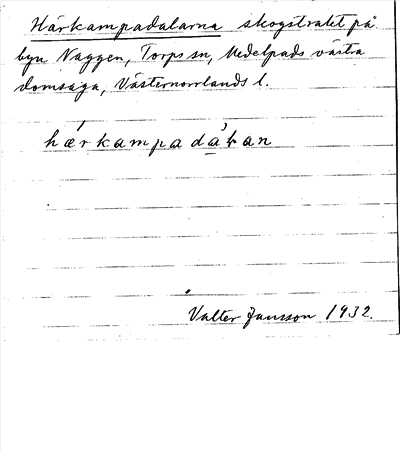 Härkampadalarna skogstrakt på
byn Naggen, Torps sn, Medelpads västra
domsaga, Västernorrlands l.
hærkampad
Valter Jansson 1932.